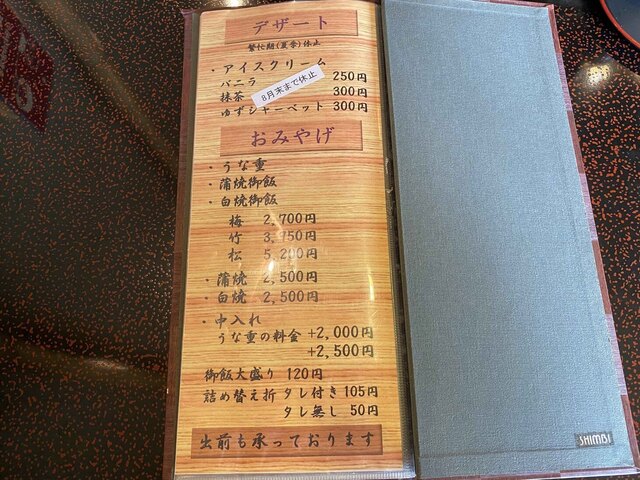 デザート
繁忙期(夏季)休止
・アイスクリーム
バニラ 250円
抹茶 300円
8月末まで休止
ゆずシャーベット 300円
おみやげ
・うな重
・蒲焼御飯
・白焼御飯
梅 2,700円
竹 3,750円
松 5,200円
・蒲焼 2,500円
・白焼 2,500円
・中入れ
うな重の料金 +2,000円
+2,500円
御飯大盛り 120円
詰め替え折 タレ付き 105円
タレ無し 50円
出前も承っております
SHIMBI